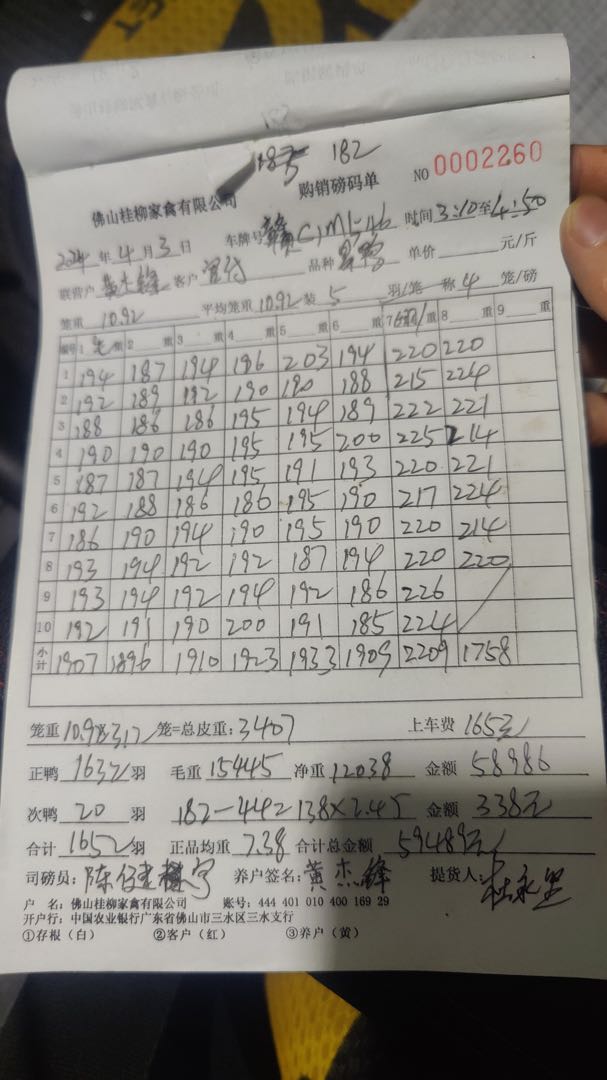 187 5 182
佛山桂柳家禽有限公司 购销磅码单 NO 0002260
2024年4月3日 车牌号 赣C 时间 3:10至4:50
联营户 黄杰锋 客户 品种 单价 元/斤
笼重 10.92 平均笼重 10.92 装 5 羽/笼 一称 4 笼/磅
编号 1 重 2 重 3 重 4 重 5 重 6 重 7 重 8 重 9 重
1 194 187 194 196 203 194 220 220
2 192 189 192 190 190 188 215 224
3 188 186 186 195 194 189 222 221
4 190 190 190 195 195 200 225 214
5 187 187 194 195 191 193 220 221
6 192 188 186 186 195 190 217 224
7 186 190 194 190 195 190 220 214
8 193 194 192 192 187 194 220 220
9 193 194 192 194 192 186 226
10 192 191 190 200 191 185 224
小计 1907 1896 1910 1923 1933 1909 2209 1758
笼重 笼=总皮重: 3407 上车费 165元
正鸭 1632 羽 毛重 15445 净重 12038 金额 58986
次鸭 20 羽 182-44=138×2.45 金额 338元
合计 1652 羽 正品均重 7.38 合计总金额 59489元
司磅员: 养户签名: 黄杰锋 提货人:
户 名: 佛山桂柳家禽有限公司 账号: 444 401 010 400 169 29
开户行: 中国农业银行广东省佛山市三水区三水支行
①存根(白) ②客户(红) ③养户(黄)